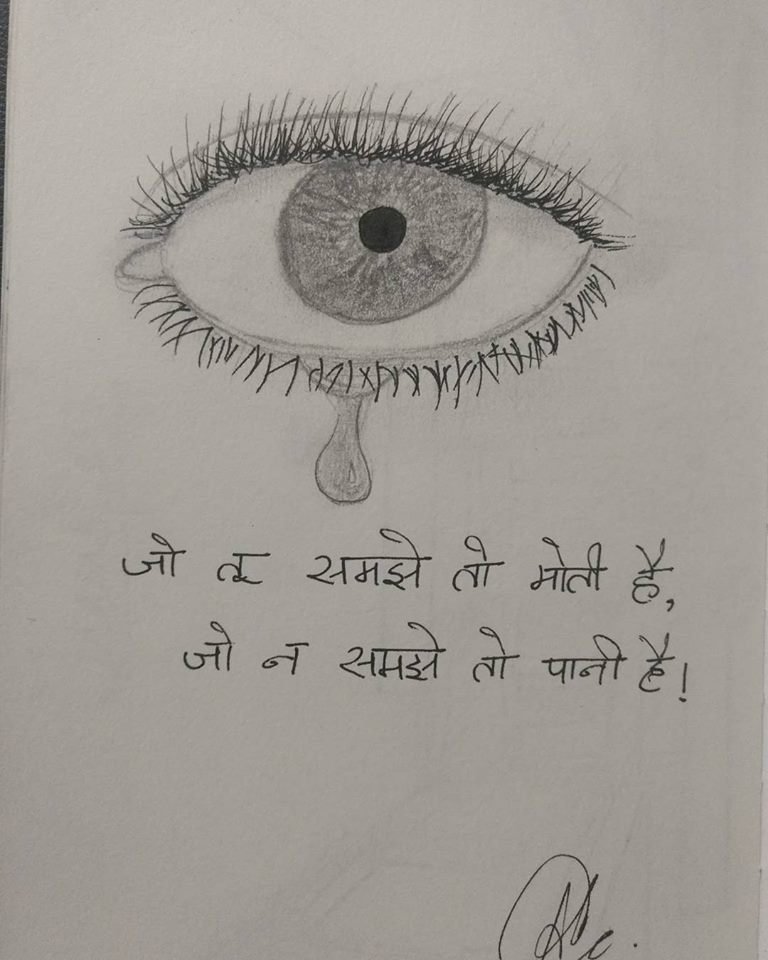 जो तू समझे तो मोती है,
जो न समझे तो पानी है!